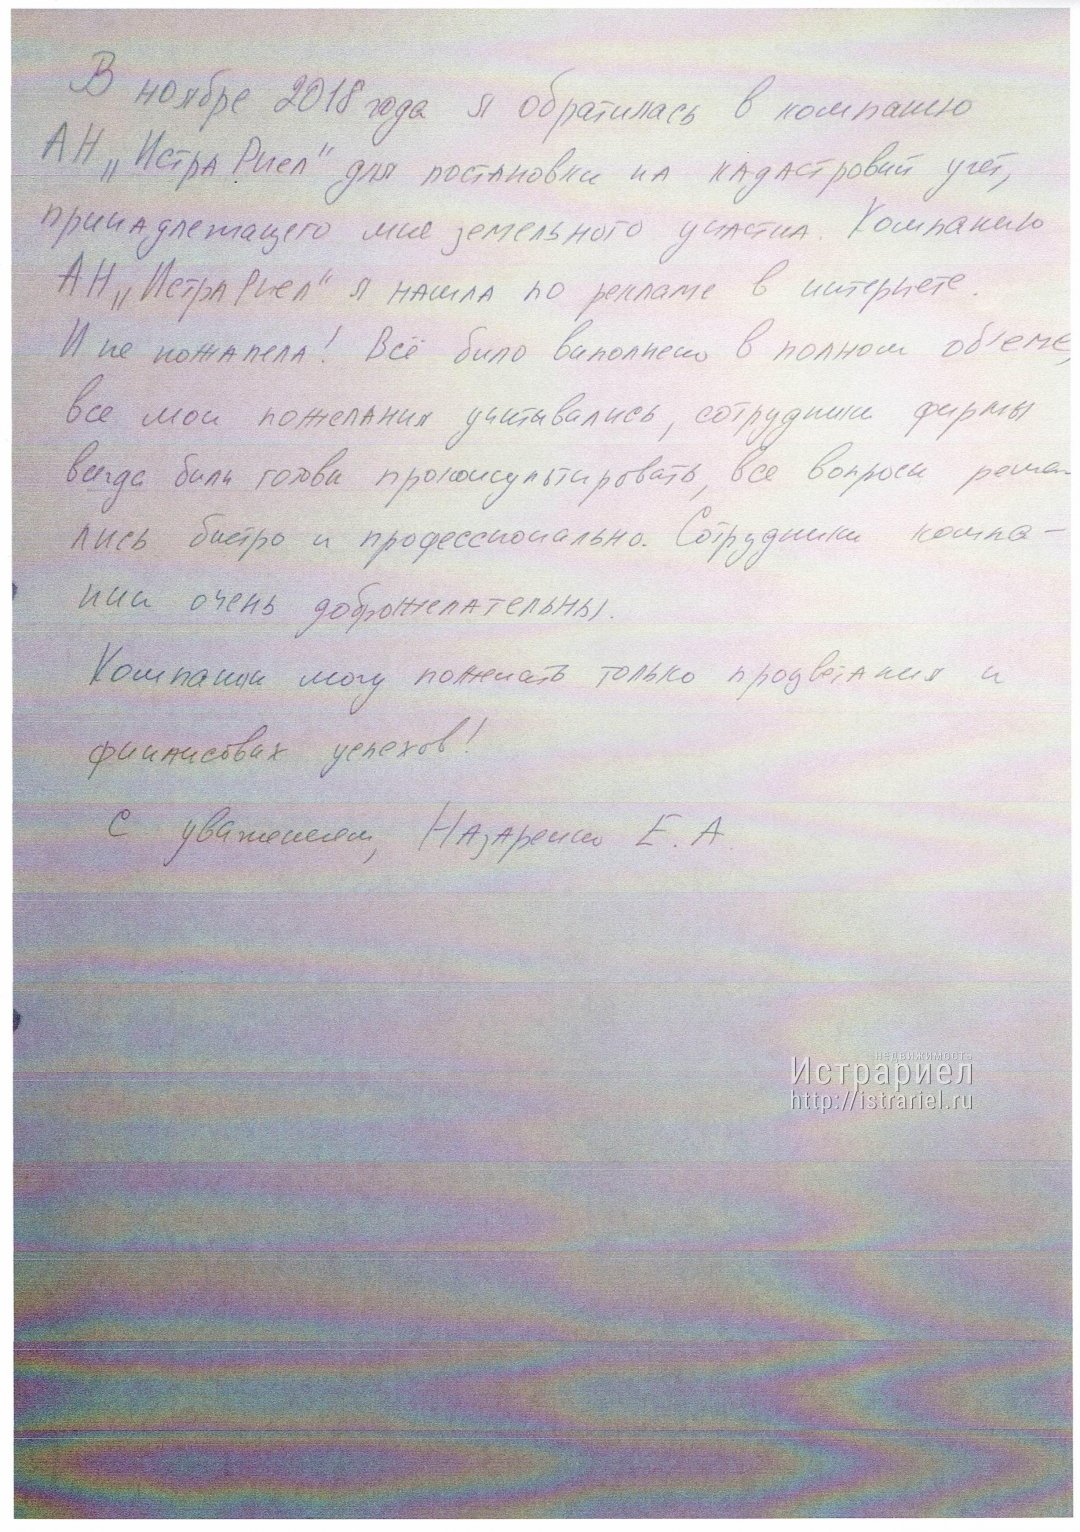 В ноябре 2018 года я обратилась в компанию
АН „Истра Риел" для постановки на кадастровый учёт,
принадлежащего мне земельного участка. Компанию
АН „Истра Риел" я нашла по рекламе в интернете.
И не пожалела! Всё было выполнено в полном об'ёме,
все мои пожелания учитывались, сотрудники фирмы
всегда были готовы проконсультировать, все вопросы реша-
лись быстро и профессионально. Сотрудники компа-
нии очень доброжелательны.
Компании могу пожелать только процветания и
финансовых успехов!
С уважением, Назаренко Е. А.
недвижимость
Истрариел
http://istrariel.ru